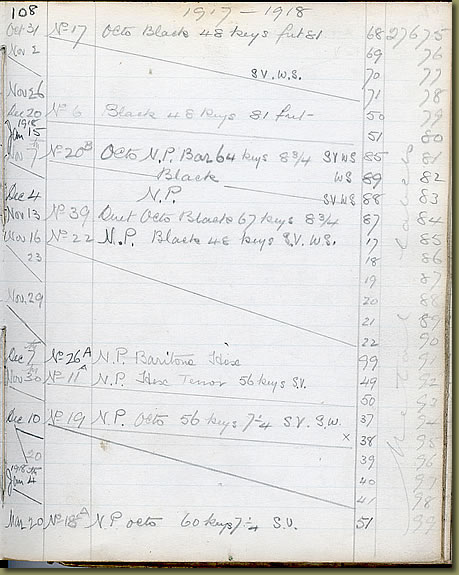 108 1917-1918
Oct 31 No 17 Octo Black 48 keys fret 81 68 27675
Nov 2 69 76
S.V.W.S. 70 77
Nov 26 71 78
Dec 20 No 6 Black 48 keys 81 fret 50 79
1918
Jan 15 51 80
Nov 7th No 20B Octo N.P. Bar 64 keys 8 3/4 SVWS 85 81
Black WS 89 82
Dec 4 N.P. SVWS 88 83
Nov 13 No 39 Duet Octo Black 67 keys 8 3/4 87 84
Nov 16 No 22 N.P. Black 48 keys S.V. W.S. 17 85
23 18 86
19 87
Nov. 29 20 88
21 89
22 90
Dec 7th No 26A N.P. Baritone Hexe 99 91
Nov 30 No 11A N.P. Hexe Tenor 56 keys S.V. 49 92
50 93
Dec 10 No 19 N.P. Octo 56 keys 7 1/4 S.V. S.W. 37 94
x 38 95
20 39 96
1918
Jan 4 40 97
41 98
Mar 20 No 18A N.P. octo 60 keys 7 1/4 S.V. 51 99